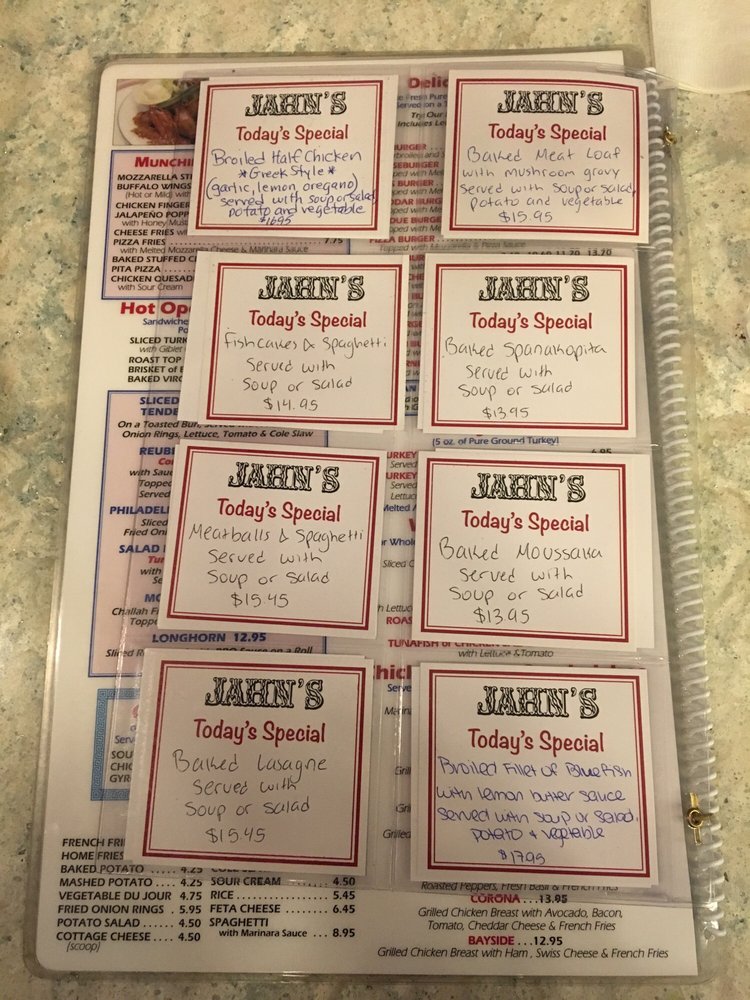 JAHN'S
Today's Special
Broiled Half Chicken
*Greek Style*
(garlic, lemon, oregano)
served with soup or salad,
potato and vegetable
$16.95
JAHN'S
Today's Special
Baked Meat Loaf
with mushroom gravy
served with soup or salad,
potato and vegetable
$15.95
JAHN'S
Today's Special
Fish Cakes & Spaghetti
Served with
Soup or Salad
$14.95
JAHN'S
Today's Special
Baked Spanakopita
Served with
Soup or Salad
$13.95
JAHN'S
Today's Special
Meatballs & Spaghetti
Served with
Soup or Salad
$15.45
JAHN'S
Today's Special
Baked Moussaka
Served with
Soup or Salad
$13.95
JAHN'S
Today's Special
Baked Lasagne
Served with
Soup or Salad
$15.45
JAHN'S
Today's Special
Broiled Fillet of Bluefish
with lemon butter sauce
Served with soup or salad,
potato + vegetable
$17.95
MOZZARELLA
BUFFALO WINGS
(Hot or Mild)
CHICKEN FINGER
JALAPEÑO
with Honey
CHEESE FRIES
PIZZA FRIES 7.75
with Melted Mozzarella Cheese & Marinara Sauce
BAKED STUFFED
PITA PIZZA
CHICKEN
with Sour Cream
Hot
SLICED
with Giblet
ROAST TOP
BRISKET of
BAKED
SLICED
On a Toasted Bun,
Onion Rings, Lettuce, Tomato & Cole Slaw
LONGHORN 12.95
PIZZA BURGER
(5 oz. of Pure Ground Turkey)
with Lettuce & Tomato
FRENCH
HOME FRIES
BAKED POTATO ..... 4.25
MASHED POTATO .... 4.25
VEGETABLE DU JOUR 4.75
FRIED ONION RINGS . 5.95
POTATO SALAD ...... 4.50
COTTAGE CHEESE .... 4.50
(scoop)
SOUR CREAM 4.50
RICE 5.45
FETA CHEESE 6.45
SPAGHETTI
with Marinara Sauce ... 8.95
Roasted Peppers, Fresh Basil & French Fries
CORONA ...13.95
Grilled Chicken Breast with Avocado, Bacon,
Tomato, Cheddar Cheese & French Fries
BAYSIDE ...12.95
Grilled Chicken Breast with Ham, Swiss Cheese & French Fries